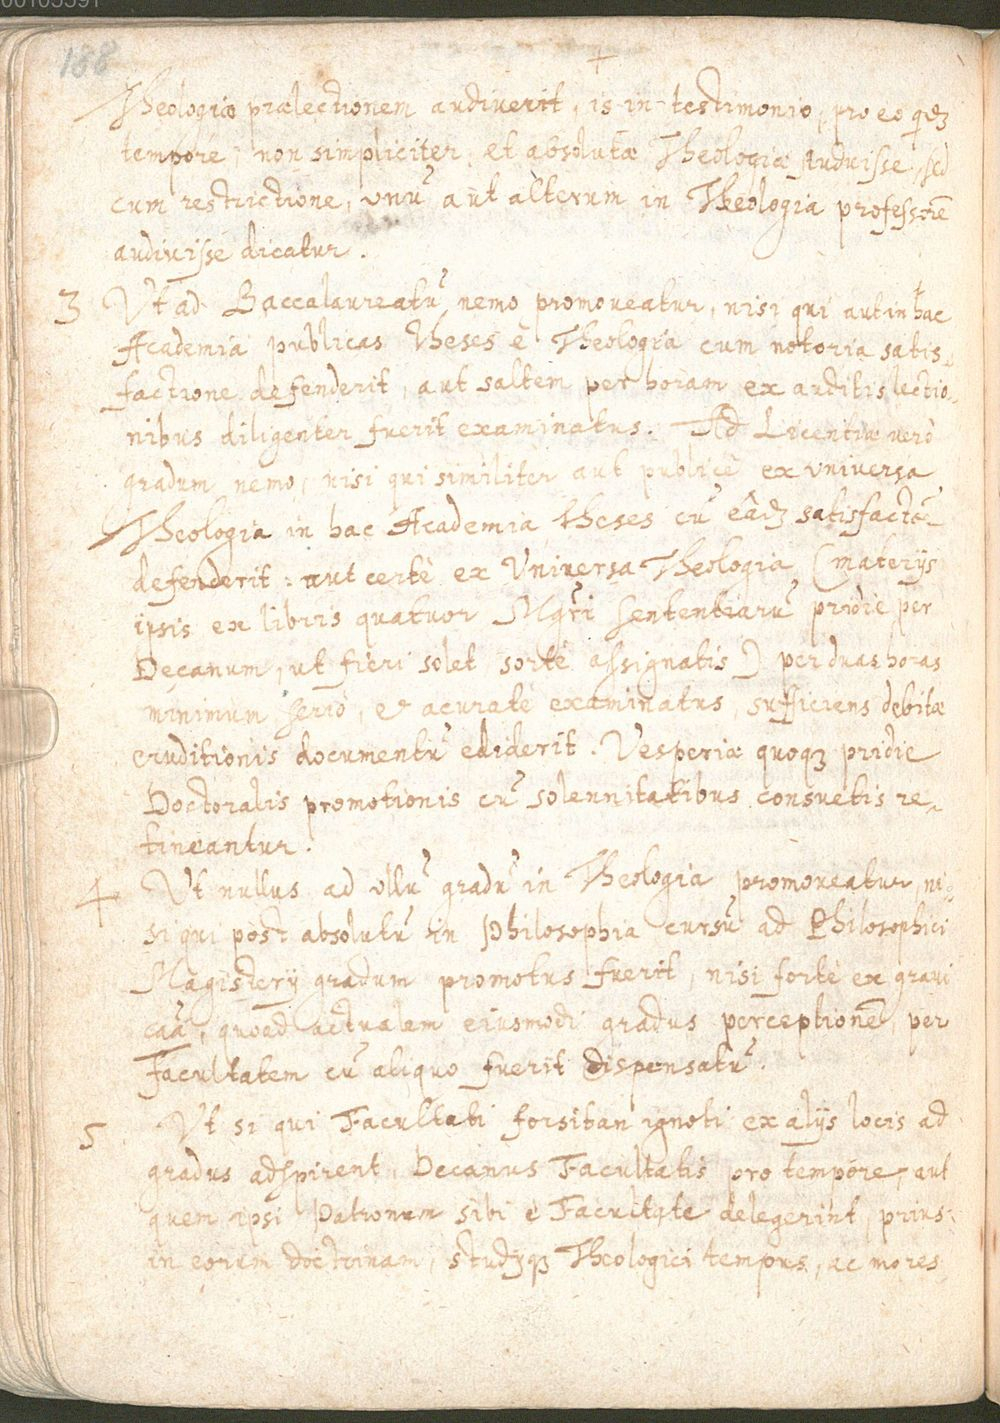 00103391
188
Theologiæ prælectionem audiverit, is in testimonio, pro eo qdẽ
tempore, non simpliciter, et absolutæ Theologiæ Audvisse, sed
cum restrictione, vnũ aut alterum in Theologia professorẽ
audivisse dicatur.
3 Vt ad Baccalaureatũ nemo promoveatur, nisi qui aut in hac
Academia publicas theses è Theologia cum notoria satis,,
factione defenderit, aut saltem per horam ex auditis lectio,,
nibus diligenter fuerit examinatus. Ad Licentiæ verò
gradum nemo, nisi qui similiter aut publicè ex vniversa
Theologia in hac Academia theses cũ eâdẽ satisfactõe
defenderit: aut certè ex Vniversa Theologia (materijs
ipsis ex libris quatuor Mgr̃i sententiarũ pridie per
Decanum, ut fieri solet sorte assignatis) per duas horas
minimum seriò, & acuratè examinatus, sufficiens debitæ
eruditionis documentũ ediderit. Vesperiæ quoqȝ pridie
Doctoralis promotionis cũ solennitatibus consuetis re,,
tineantur.
4 Vt nullus ad vllũ gradũ in Theologia promoveatur, ni,,
si qui post absolutũ in Philosophia cursũ ad Philosophici
Magisterij gradum promotus fuerit, nisi fortè ex gravi
caã, quoad actualem eiusmodi gradus perceptionẽ, per
Facultatem cũ aliquo fuerit dispensatũ.
5 Vt si qui Facultati forsitan ignoti ex alijs locis ad
gradus adspirent, Decanus Facultatis pro tempore, aut
quem ipsi Patronum sibi è Facultate delegerint, prius
in eorum doctrinam, studijqȝ Theologici tempus, ac mores